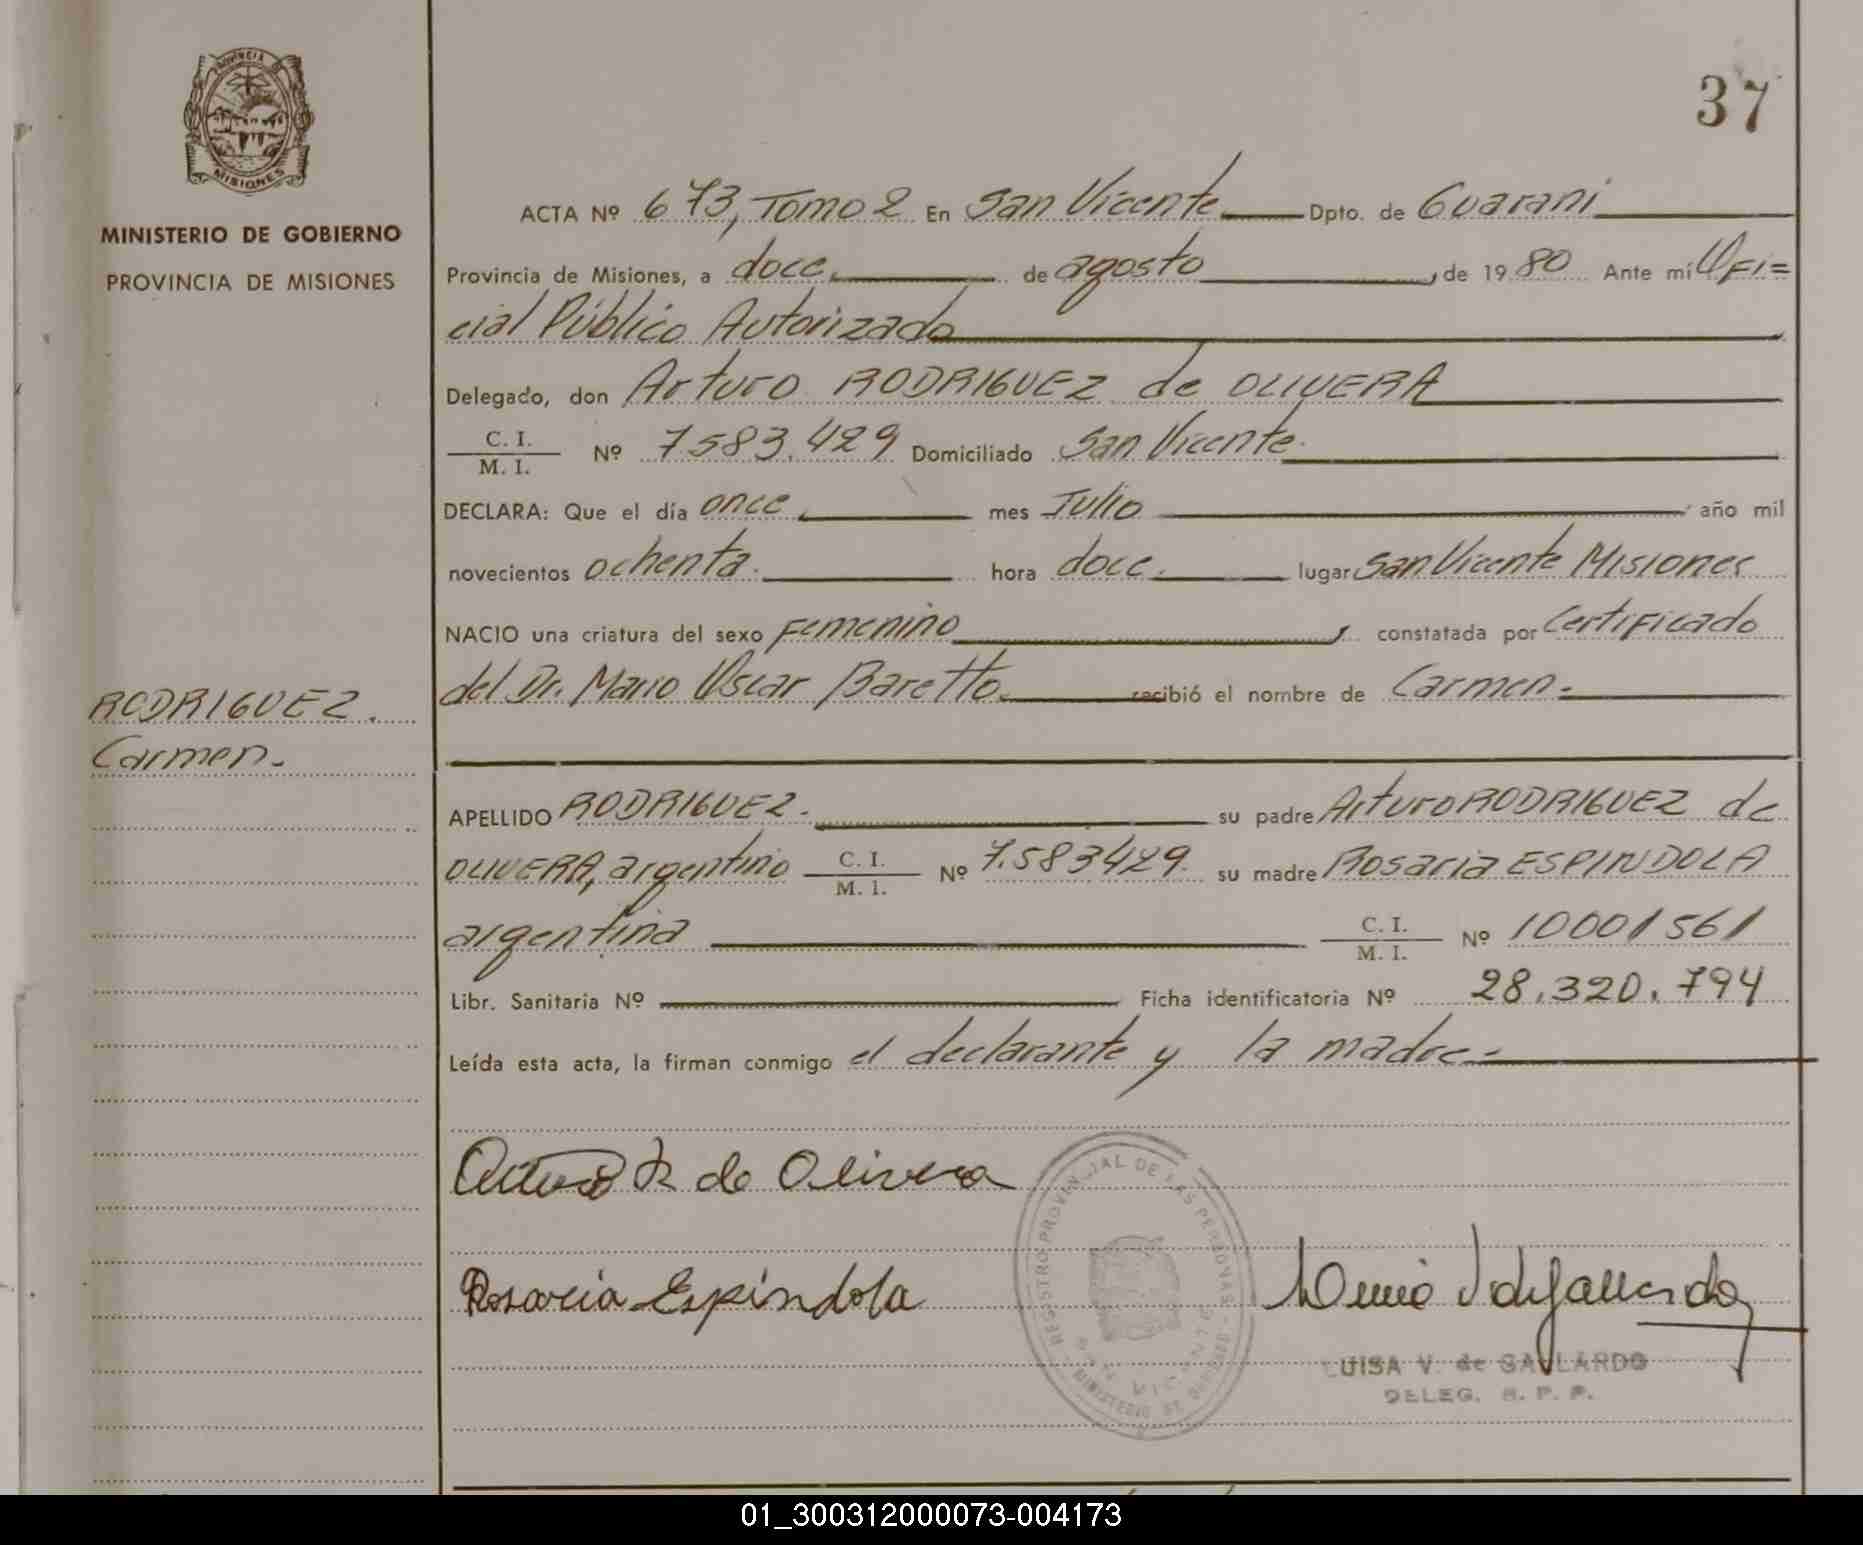 37
PROVINCIA DE
MISIONES
MINISTERIO DE GOBIERNO
PROVINCIA DE MISIONES
ACTA Nº 673, Tomo 2 En San Vicente Dpto. de Guarani
Provincia de Misiones, a doce, de agosto, de 19 80 Ante mí Ofi=
cial Público Autorizado
Delegado, don Arturo RODRIGUEZ de OLIVERA
C. I.
M. I. Nº 7583.429 Domiciliado San Vicente.
DECLARA: Que el día once, mes Julio año mil
novecientos ochenta. hora doce. lugar San Vicente Misiones
NACIO una criatura del sexo Femenino, constatada por Certificado
del Dr. Mario Oscar Baretto. recibió el nombre de Carmen.
RODRIGUEZ.
Carmen.
APELLIDO RODRIGUEZ. su padre Arturo RODRIGUEZ de
OLIVERA, argentino C. I.
M. I. Nº 7.583429. su madre Rosaria ESPINDOLA
argentina C. I.
M. I. Nº 10001561
Libr. Sanitaria Nº Ficha identificatoria Nº 28.320.794
Leída esta acta, la firman conmigo el declarante y la madre.
Arturo R de Olivera
REGISTRO PROVINCIAL DE LAS PERSONAS
MINISTERIO DE GOBIERNO
Rosaria Espíndola
LUISA V. de GALLARDO
DELEG. R. P. P.
01_300312000073-004173